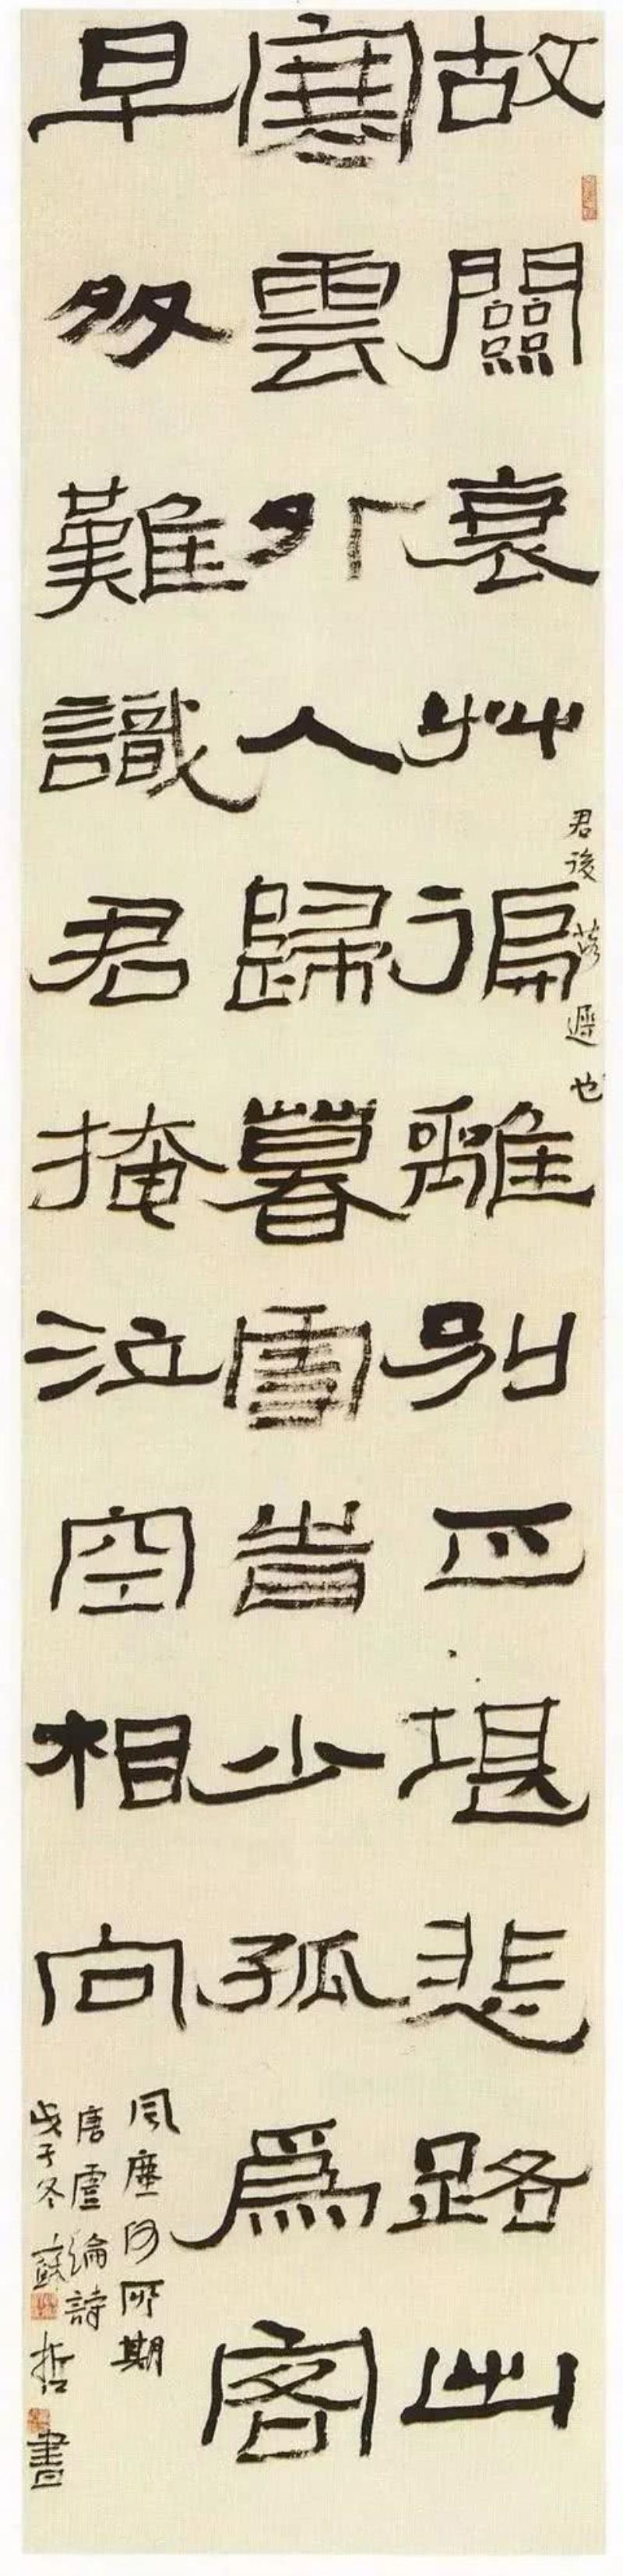 故關衰艸徧離別正堪悲路出
君後落遲也
寒雲外人歸暮雪旹少孤爲客
早多難識君掩泣空相向
風塵何所期
唐盧綸詩
戊子冬蘇哲書